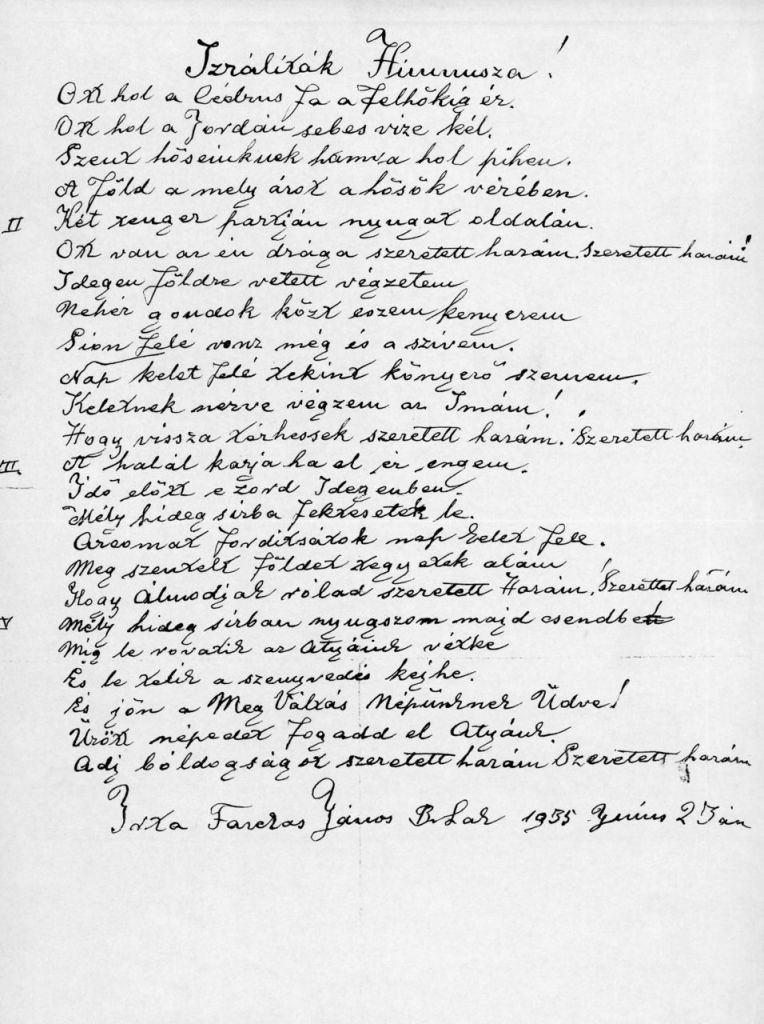 Izráliták Himnusza!
Ott hol a Cédrus fa a felhőkig ér.
Ott hol a Jordán sebes vize kél.
Szent hőseinknek hamva hol pihen.
A Föld a mely ázot a hősök vérében.
II Két tenger partján nyugat oldalán.
Ott van az én drága szeretett hazám. Szeretett hazám!
Idegen földre vetett végzetem
Nehéz gondok közt eszem kenyerem
Sion felé vonz még és a szivem.
Nap kelet felé tekint könyező szemem.
Keletnek nézve végzem az Imám!
Hogy vissza térhessek szeretett hazám! Szeretett hazám.
III. A halál karja ha el ér engem.
Idő előtt e zord Idegenben.
Mély hideg sirba fektessetek le.
Arcomat forditsátok nap kelet fele.
Meg szentelt földet tegyetek alám
Hogy Álmodjak rólad szeretett Hazám! Szerettet hazám
V Mély hideg sirban nyugszom majd csendbe
Mig le rovatik az Atyáink vétke
És le telik a szenyvedés kejhe.
És jön a Meg Váltás Népünknek Üdve!
Üzött népedet fogadd el Atyánk.
Adj bóldogságot szeretett hazám Szeretett hazám
Irta Farkas János B. Lak 1935 Junius 23 án